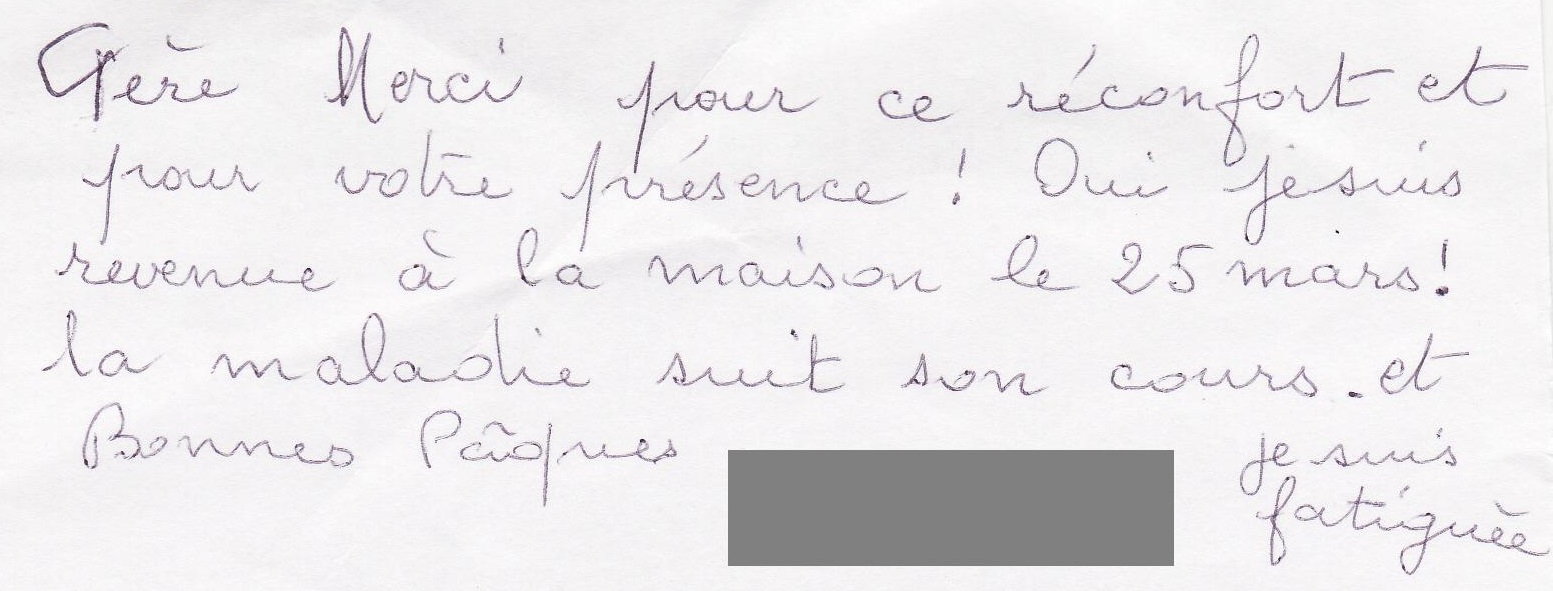 Merci pour ce réconfort et
pour votre présence ! Oui je suis
revenue à la maison le 25 mars !
la maladie suit son cours. et
Bonnes Pâques je suis
fatiguée